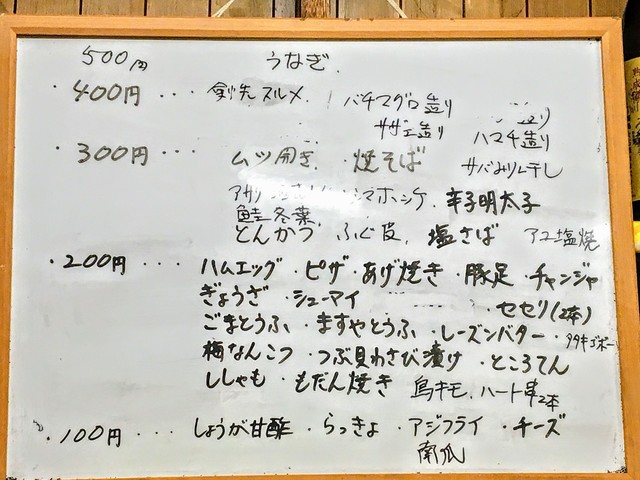 500円 うなぎ
・400円 ・・・ 剣先スルメ. バチマグロ造り
サザエ造り ハマチ造り
・300円 ・・・ ムツ開き. ・焼そば サバみりん干し
シマホッケ. 辛子明太子
鮭冬葉.
とんかつ ふぐ皮. 塩さば アユ塩焼
・200円 ・・・ ハムエッグ ・ピザ ・あげ焼き ・豚足 ・チャンジャ
ぎょうざ ・シューマイ セセリ(2本)
ごまとうふ ・ますやとうふ ・レーズンバター ・タタキゴボー
梅なんこつ ・つぶ貝わさび漬け ・ところてん
ししゃも ・もだん焼き 鳥キモ. ハート串2本
・100円 ・・・ しょうが甘酢 ・らっきょ ・アジフライ ・チーズ
南瓜